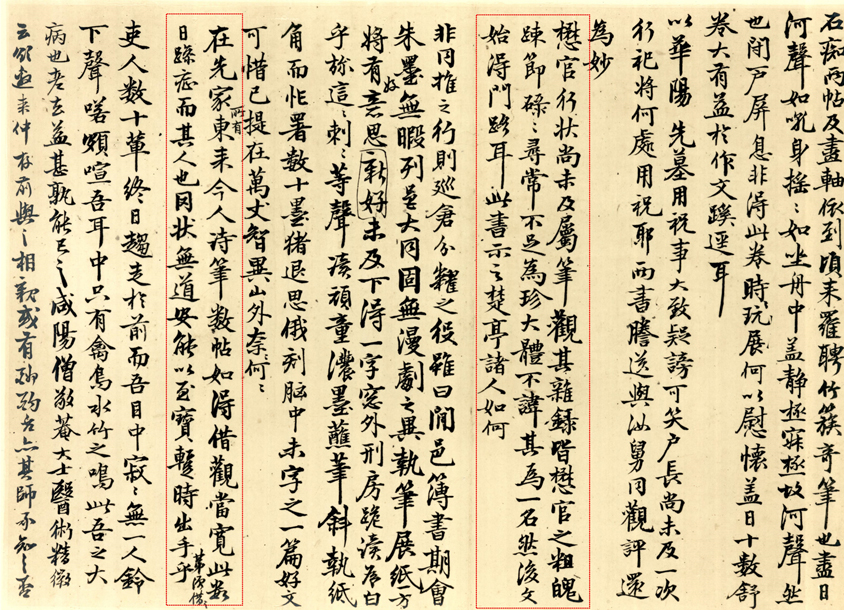 石痴兩帖及畫軸依到頃来羅聘竹簇奇筆也盡日
河聲如吼身搖〻如坐舟中盖静極寂極故河聲然
也閉户屏息非得此卷時玩展何以慰懷盖日十數舒
卷大有益於作文蹊逕耳
以華陽 先墓用祝事大致疑謗可笑户長尚未及一次
行祀將何處用祝耶兩書謄送與汝舅同觀評還
為妙
懋官行狀尚未及屬筆觀其雜録皆懋官之粗魄
踈節碌〻尋常不足為珍大體不諱其為一名然後文
始得門路耳此書示之楚亭諸人如何
非同推之行則巡倉分糶之役雖曰閒邑簿書期會
朱墨無暇列邑大同固無漫劇之異執筆展紙方
將有好意思新好未及下得一字窓外刑房跪讀為白
乎旀這〻刺〻等聲頑童濃墨蘸筆斜執紙
角而忙署數十墨猪退思俄刻腦中未字之一篇好文
可惜已提在萬丈智異山外奈何〻〻
在先家東来今人诗筆數帖兩首如得借觀當寬此數
日躁症而其人也罔狀無道安能以至寶暫時出手乎第須借〻
吏人數十軰終日趨走於前而吾目中寂〻無一人鈴
下聲喏喧吾耳中只有禽鳥水竹之鳴此吾之大
病也老去益甚孰能已之咸陽僧敬菴大士醫術精微
云欲邀来仲存前與之相親或有其師不知之否